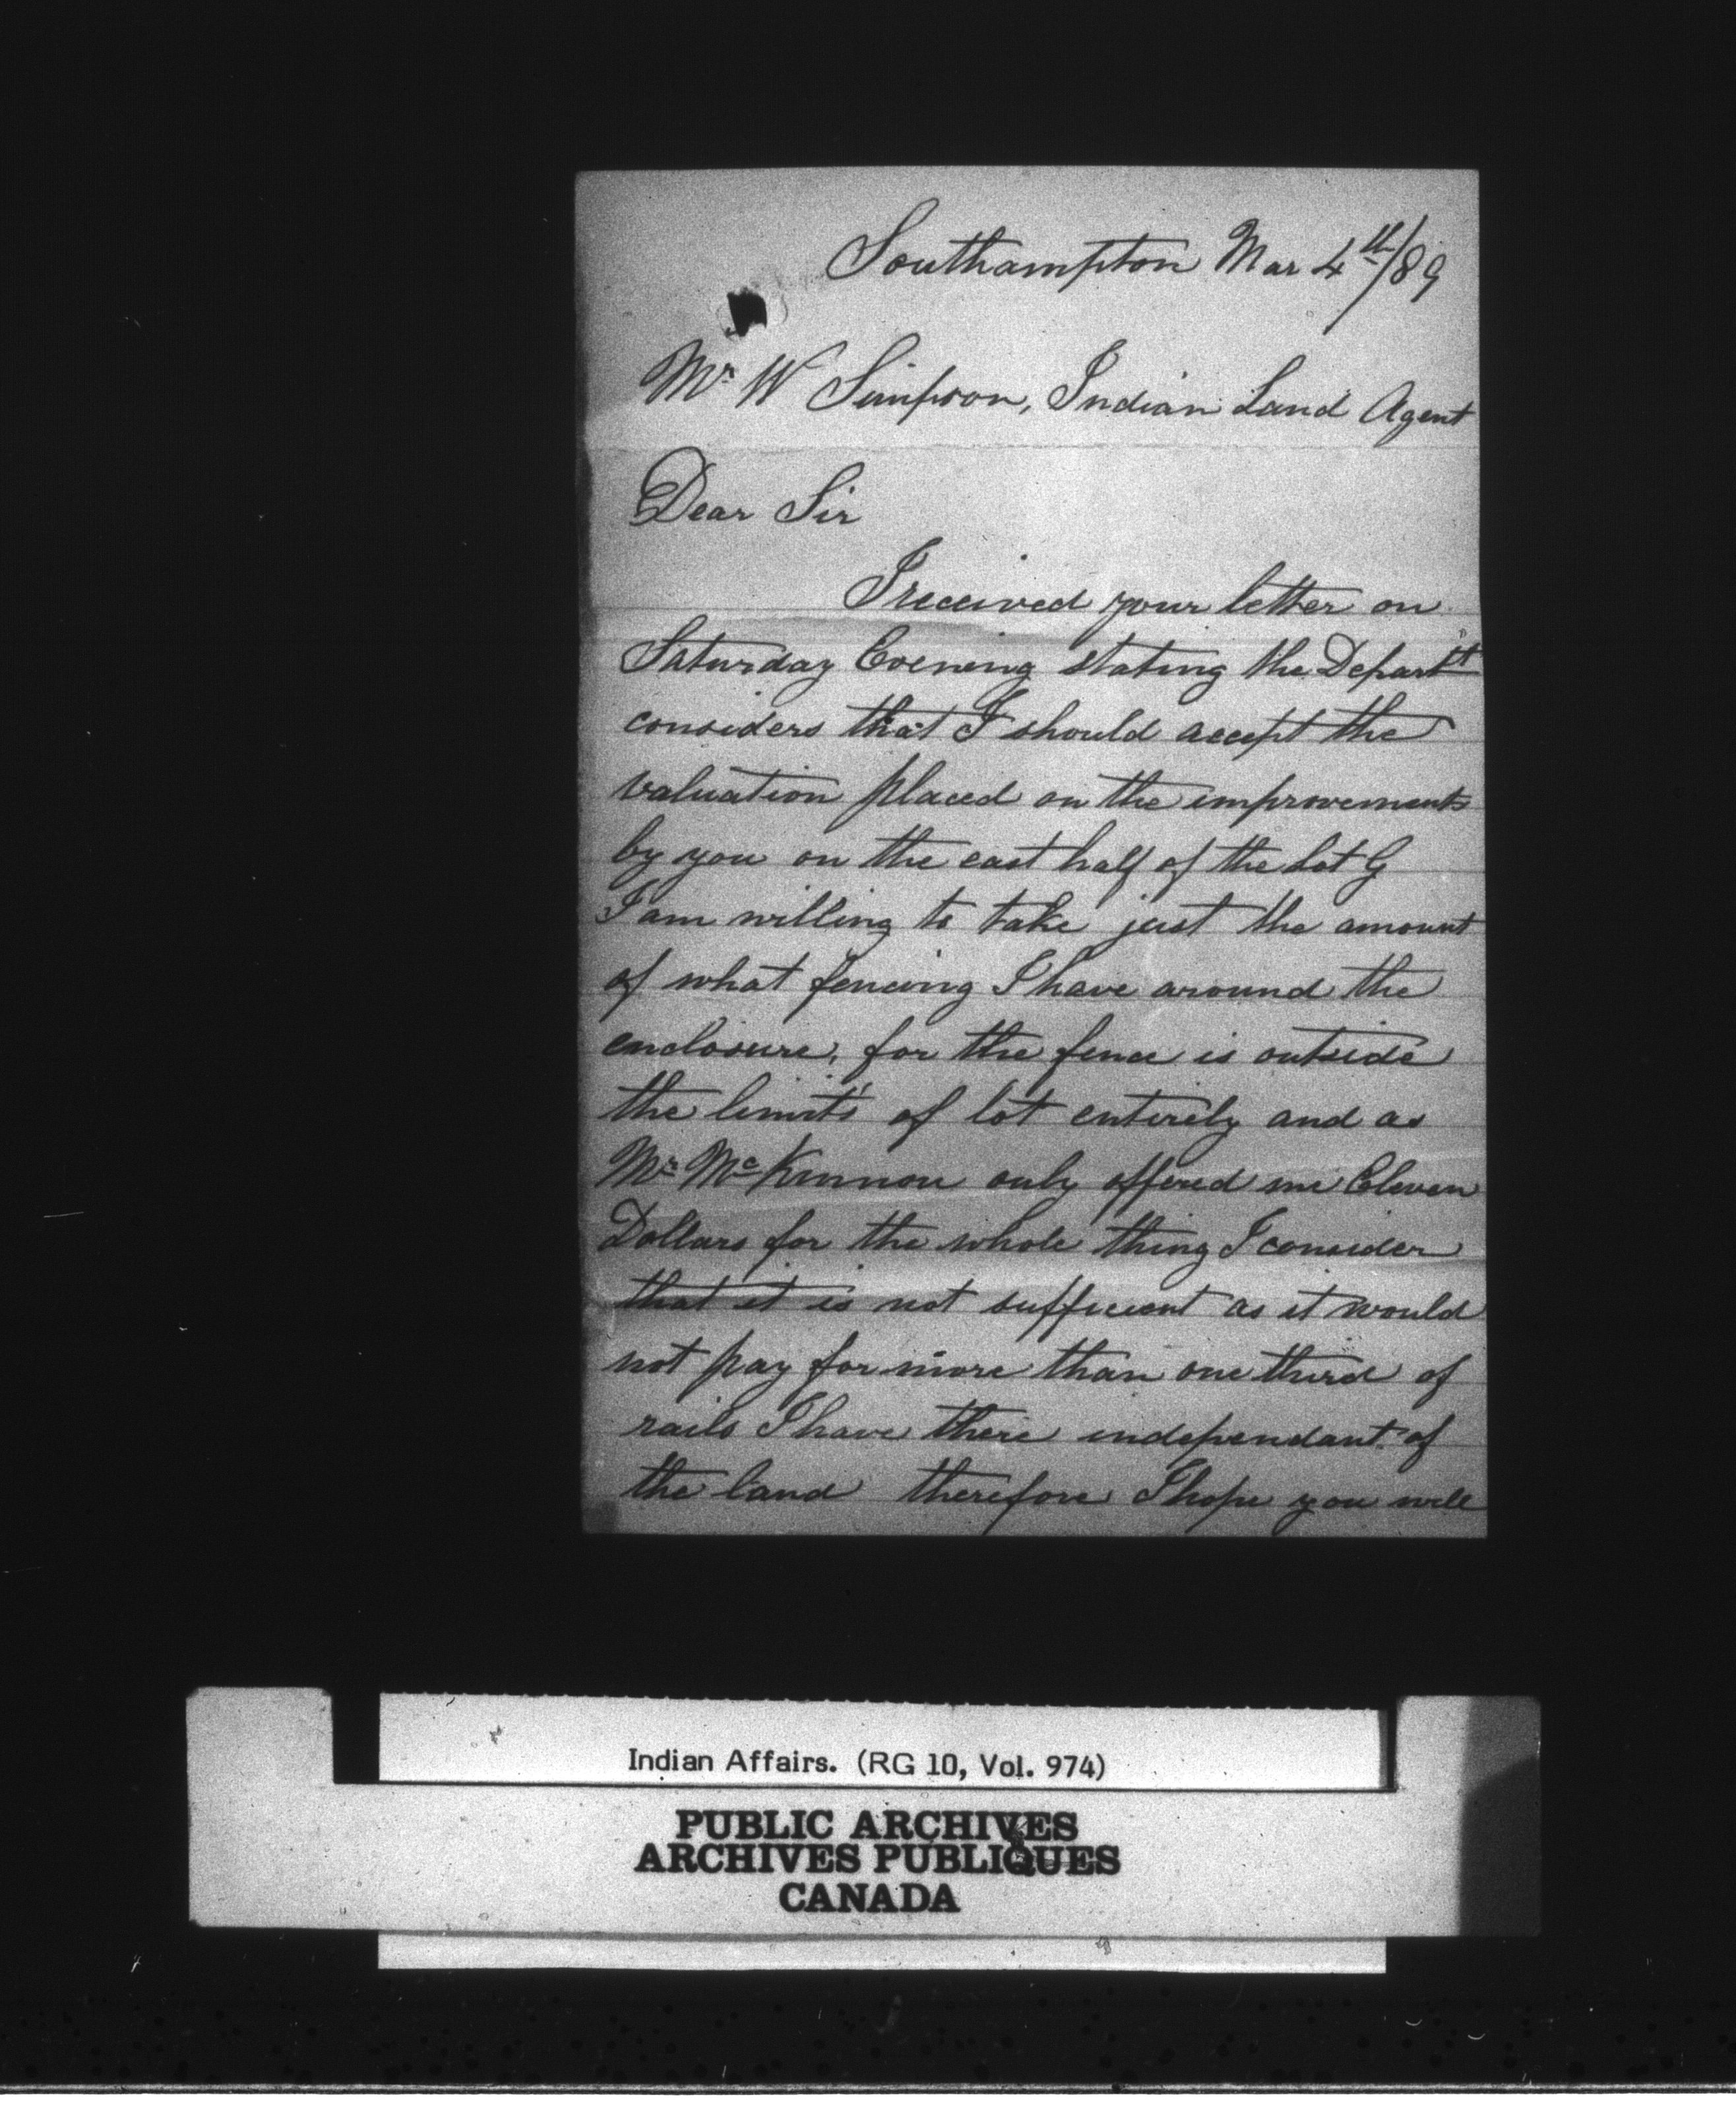 Southampton Mar 4th/89
Mr W Simpson, Indian Land Agent
Dear Sir
I received your letter on
Saturday Evening stating the Depart't
considers that I should accept the
valuation placed on the improvements
by you on the east half of the Lot G
I am willing to take just the amount
of what fencing I have around the
enclosure, for the fence is outside
the limits of lot entirely and as
Mr McKinnon only offered me Eleven
Dollars for the whole thing I consider
that it is not sufficient as it would
not pay for more than one third of
rails I have there independant of
the land therefore I hope you will
Indian Affairs. (RG 10, Vol. 974)
PUBLIC ARCHIVES
ARCHIVES PUBLIQUES
CANADA